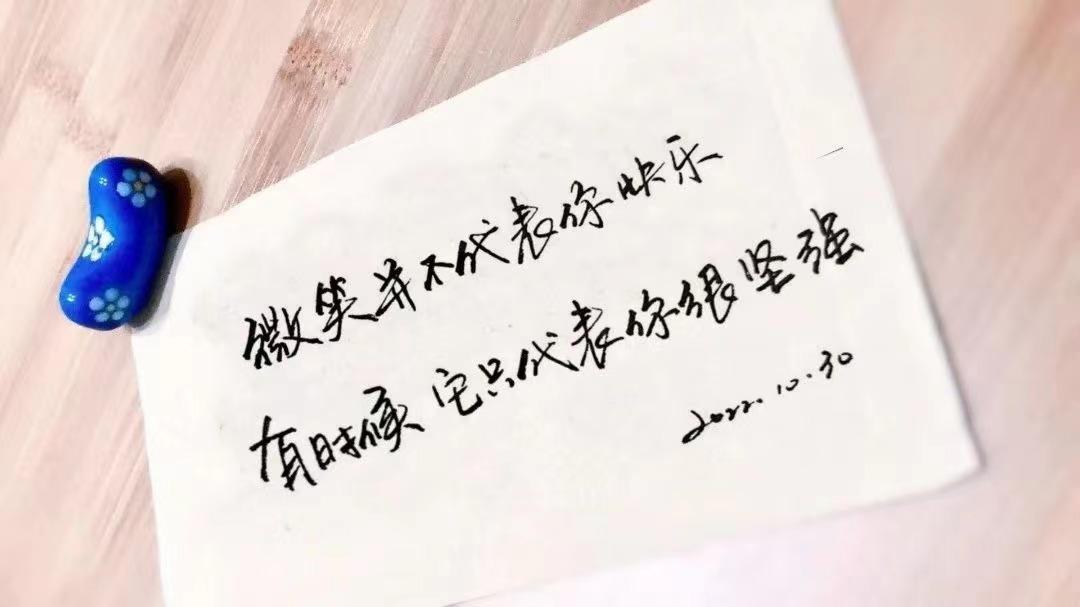 微笑并不代表你快乐
有时候它只代表你很坚强
2022.10.30